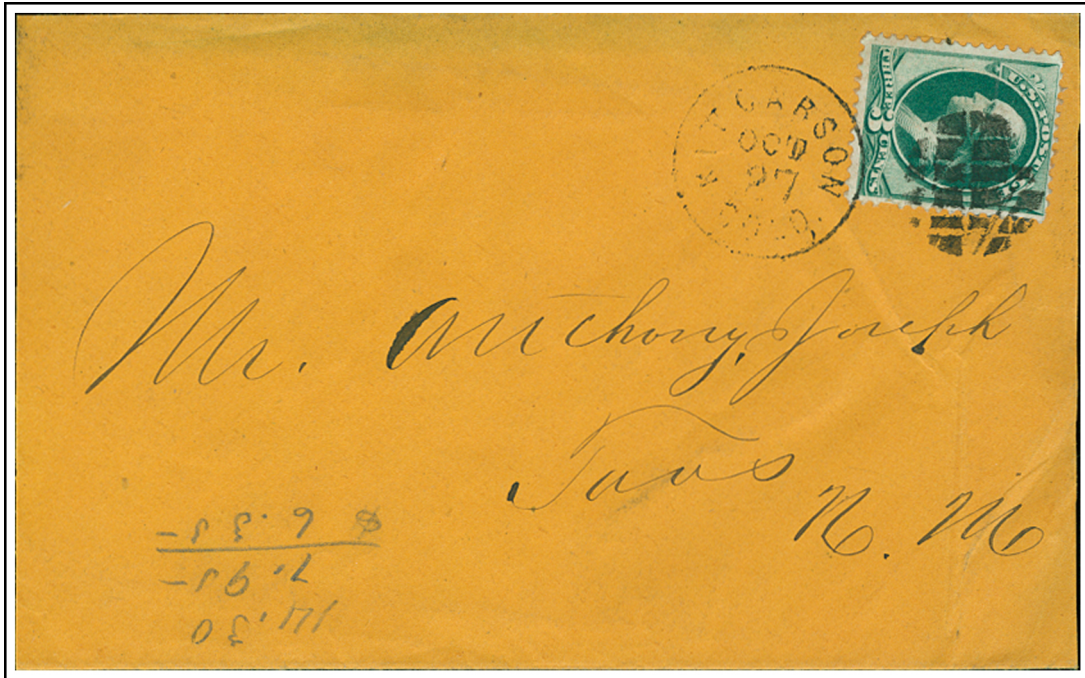 KIT CARSON
OCT
27
COLO.
U.S. POSTAGE
THREE
3
CENTS
Mr. Anthony Joseph
Taos
N. M
14.30
7.95-
$ 6.35-